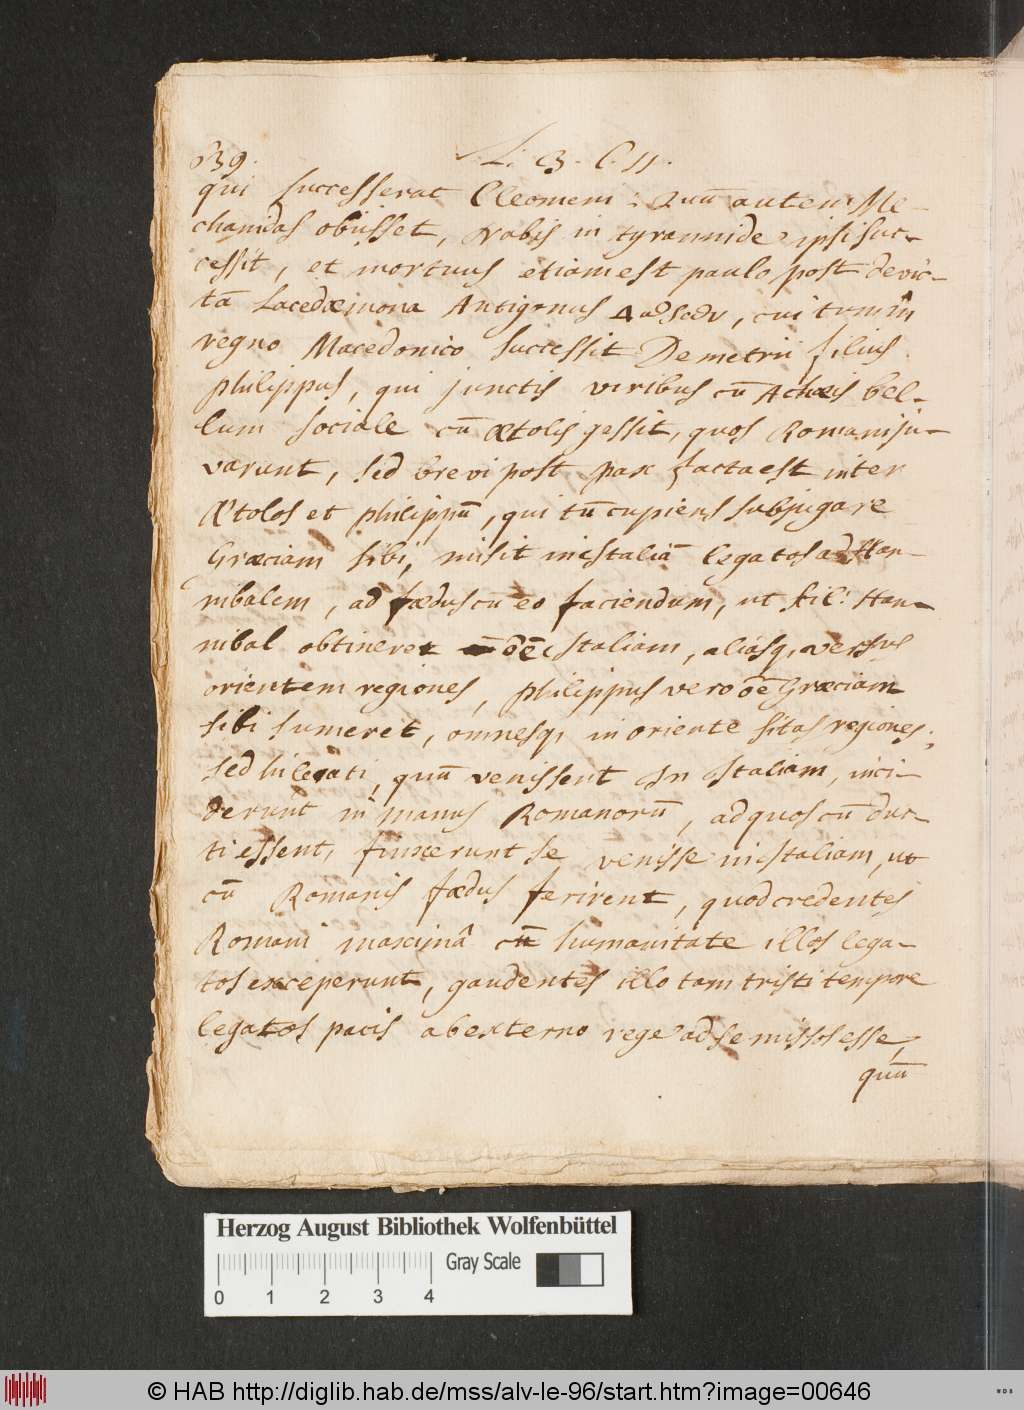 639.
L. 3. C. 11.
qui successerat Cleomeni: Quū autem Me-
chanidas obiisset, Nabis in tyrannide ipsi suc-
cessit, et mortuus etiam est paulo post devic-
tā Lacedæmona Antigonus Δωσων, cui tum in
regno Macedonico successit Demetrii filius
Philippus, qui junctis viribus cū Achæis bel-
lum sociale cū Ætolis gessit, quos Romani ju-
varunt, sed brevi post pax facta est inter
Ætolos et Philippū, qui tū cupiens subjugare
Græciam sibi, misit in Italiā legatos ad Han-
nibalem, ad fœdus cū eo faciendum, ut scil: Han-
nibal obtineret oē Italiam, aliasq, versus
orientem regiones, Philippus vero oē Græciam
sibi sumeret, omnesq, in oriente sitas regiones;
sed hi legati, quū venissent in Italiam, inci-
derunt in manus Romanorū, ad quos cū duc-
ti essent, finxerunt se venisse in Italiam, ut
cū Romanis fœdus ferirent, quod credentes
Romani maximâ cū humanitate illos lega-
tos exceperunt, gaudentes illo tam tristi tempore
legatos pacis ab externo rege ad se missos esse,
quū
Herzog August Bibliothek Wolfenbüttel
Gray Scale
0 1 2 3 4
© HAB http://diglib.hab.de/mss/alv-le-96/start.htm?image=00646